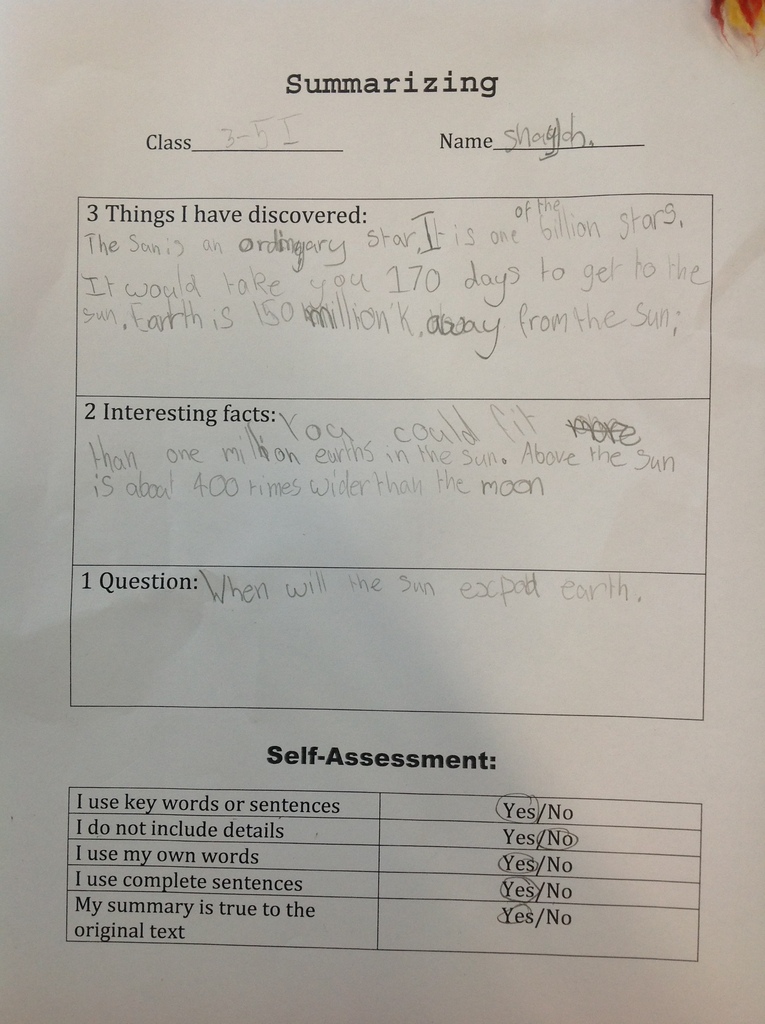 Summarizing
Class 3-5 I Name
3 Things I have discovered:
of the
The Sun is an ordingary star. It is one billion stars.
It would take you 170 days to get to the
sun. Earth is 150 million K. away from the sun;
2 Interesting facts: You could fit more
than one million earths in the sun. Above the sun
is about 400 times wider than the moon
1 Question: When will the sun excpod earth.
Self-Assessment:
I use key words or sentences Yes/No
I do not include details Yes/No
I use my own words Yes/No
I use complete sentences Yes/No
My summary is true to the Yes/No
original text